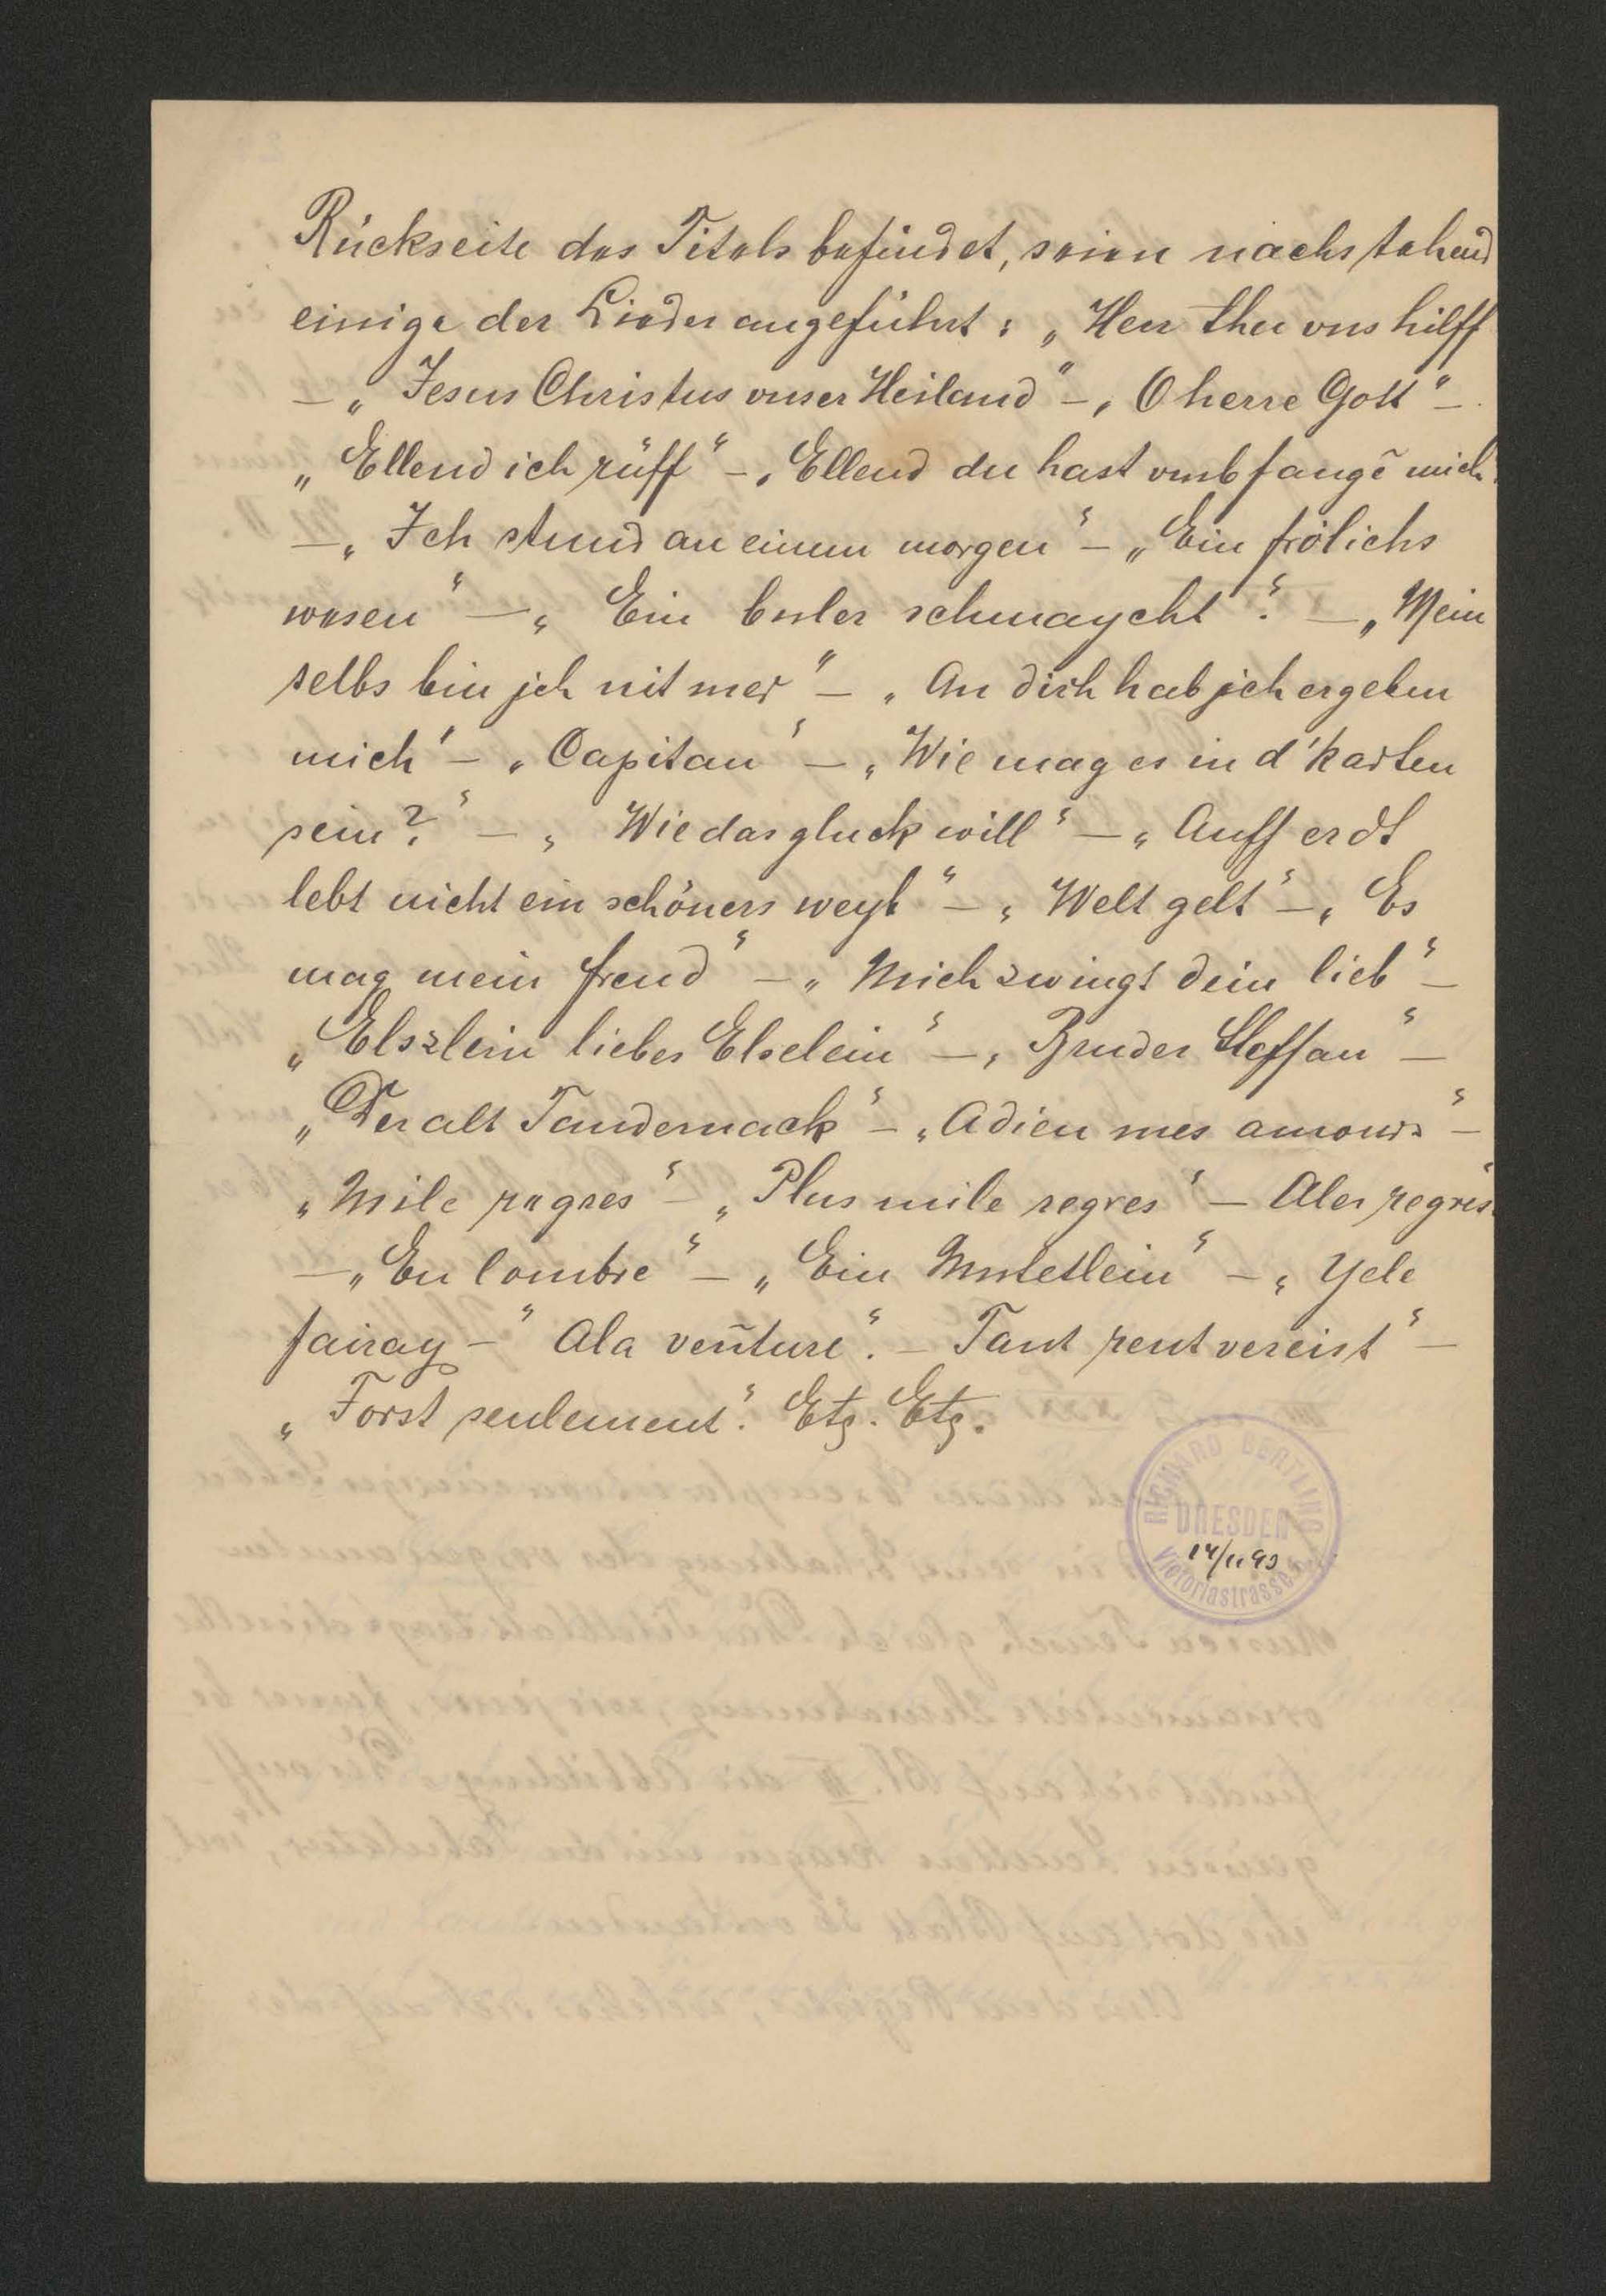 Rückseite des Titels befindet, seien nachstehend
einige der Lieder angeführt: „Herr thu vns hilff
— „Jesus Christus vnser Heiland“ — „O herre Gott“ —
„Ellend ich rüff“ — „Ellend du hast vmbfangē mich“
— „Ich stund an einem morgen“ — „Ein frölichs
wesen“ — „Ein bosler schmaycht“. — „Mein
selbs bin jch nit mer“ — „An dich hab jch ergeben
mich“ — „Capitan“ — „Wie mag es in d'karten
sein?“ — „Wie das gluck will“ — „Auff erdt
lebt nicht ein schöners weyb“ — „Welt gelt“ — „Es
mag mein freud“ — „Mich zwingt dein lieb“ —
„Elszlein liebes Elselein“ — „Bruder Steffan“ —
„Der alt Tandernack“ — „Adieu mes amours“ —
„Mile regres“ — „Plus mile regres“ — Ales regres“
— „En lombre“ — „Ein Mutetlein“ — „Yele
fairay — “ Ala venture“. — Tant peut vereist“ —
„Forst seulement“. Etz. Etz.
RICHARD BERTLING
DRESDEN
Victoriastrasse